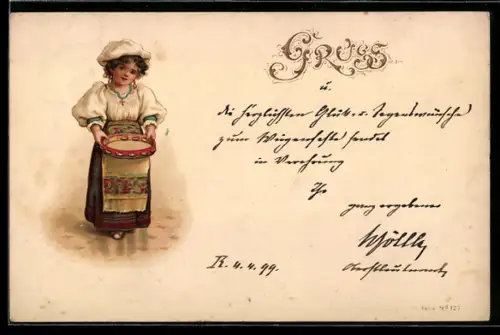 GRUSS
u.
die herzlichsten Glück- u. Segenswünsche
zum Wiegenfeste sendet
in Verehrung
Ihr
ganz ergebener
Oberstleutnant
R. 4.4.99.